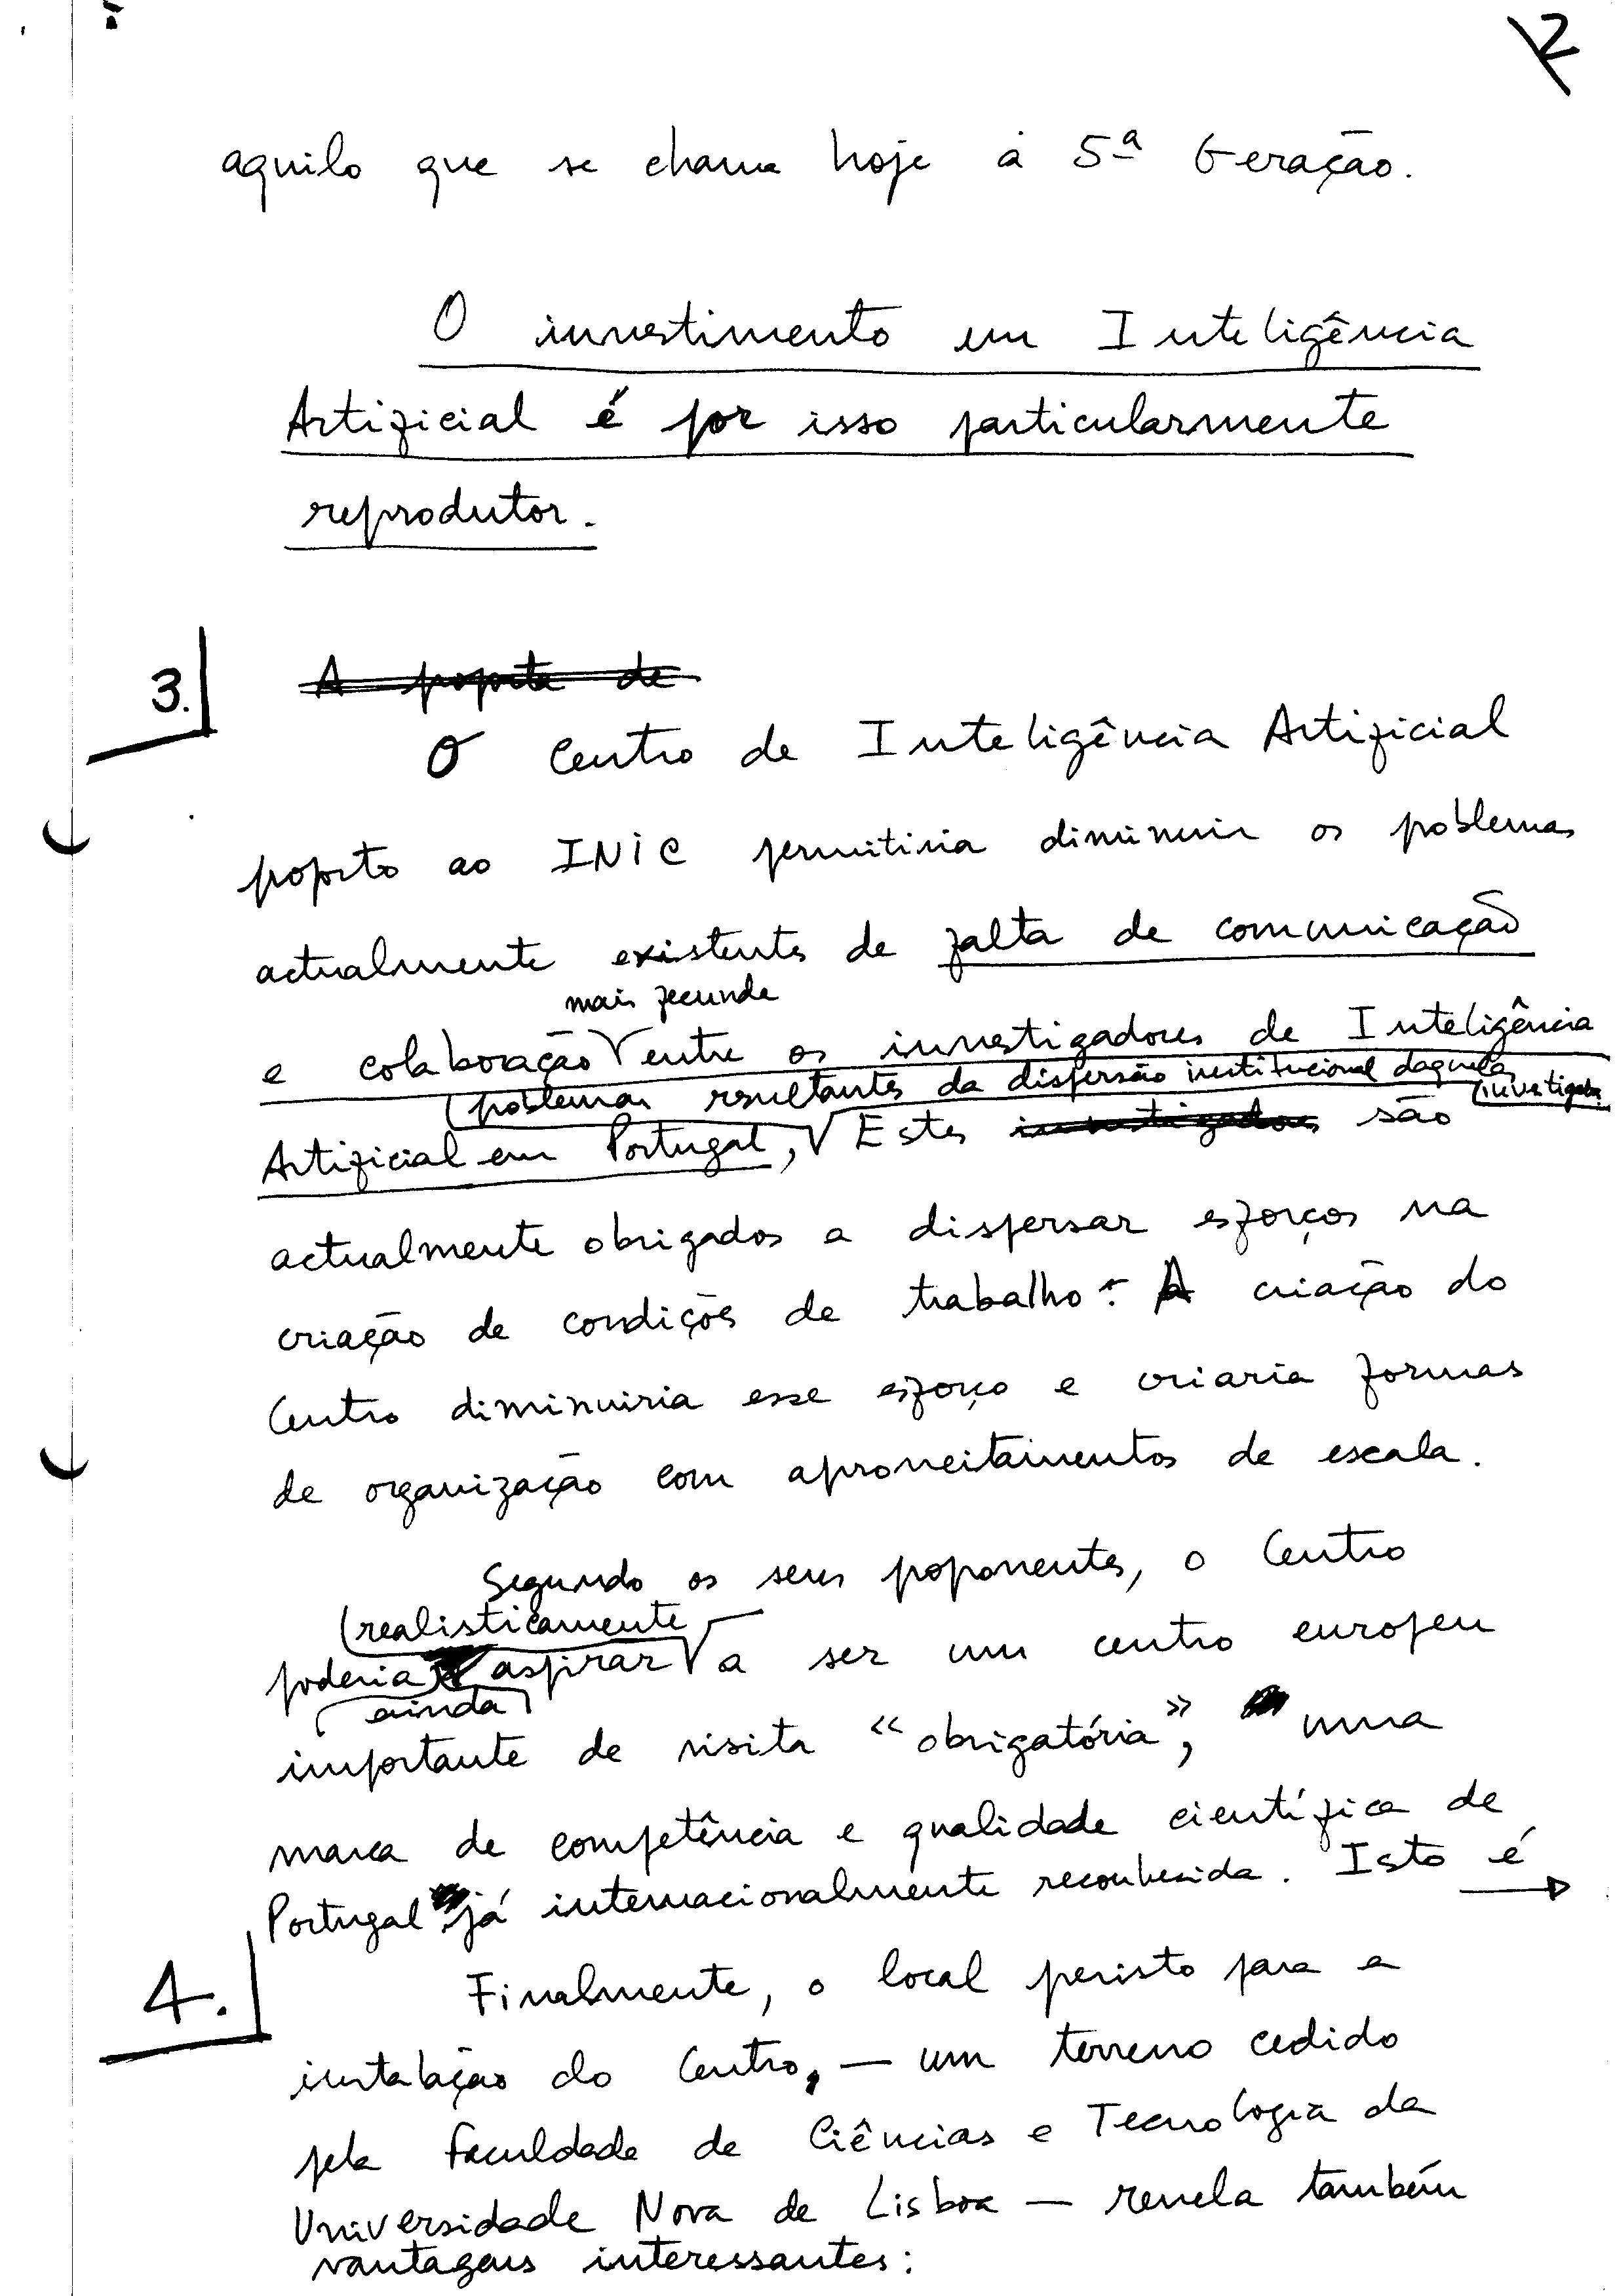 2
aquilo que se chama hoje a 5ª Geração.
O investimento em Inteligência
Artificial é por isso particularmente
reprodutor.
3.
A proposta de
O Centro de Inteligência Artificial
proposto ao INIC permitiria diminuir os problemas
actualmente existentes de falta de comunicação
mais fecunda
e colaboração entre os investigadores de Inteligência
problemas resultantes da dispersão institucional daqueles
investigad.
Artificial em Portugal, Estes investigadores são
actualmente obrigados a dispersar esforços na
criação de condições de trabalho. A criação do
Centro diminuiria esse esforço e criaria formas
de organização com aproveitamentos de escala.
Segundo os seus proponentes, o Centro
realisticamente
poderia aspirar a ser um centro europeu
ainda
importante de visita "obrigatória", uma
marca de competência e qualidade científica de
Portugal já internacionalmente reconhecida. Isto é
4.
Finalmente, o local previsto para a
instalação do Centro, — um terreno cedido
pela Faculdade de Ciências e Tecnologia da
Universidade Nova de Lisboa — revela também
vantagens interessantes: